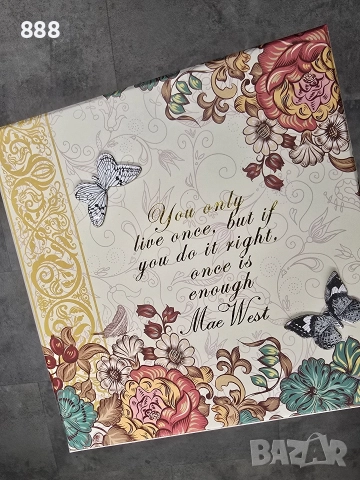 888
You only
live once, but if
you do it right,
once is
enough
Mae West
BAZAR